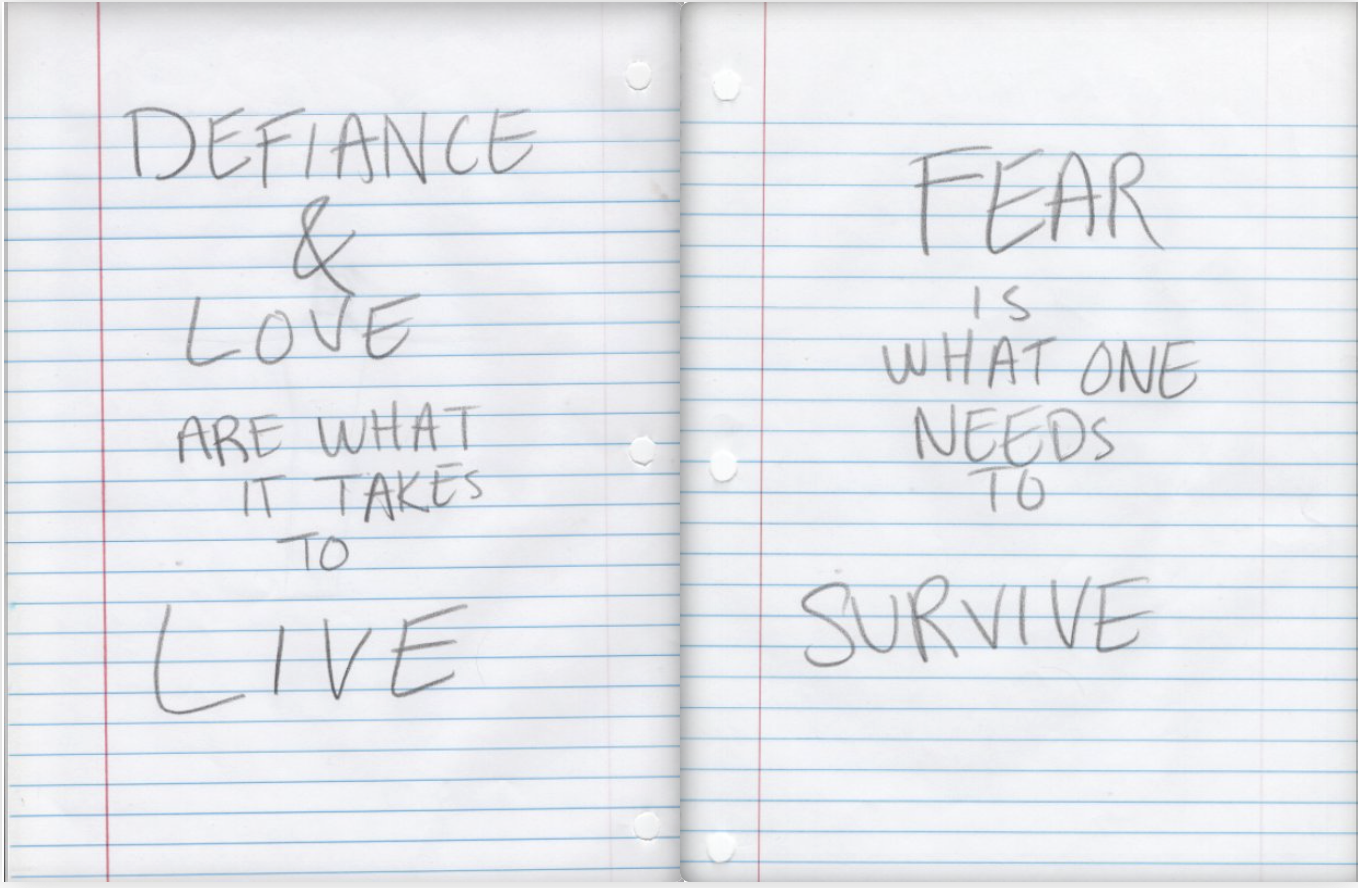 DEFIANCE
&
LOVE
ARE WHAT
IT TAKES
TO
LIVE
FEAR
IS
WHAT ONE
NEEDS
TO
SURVIVE